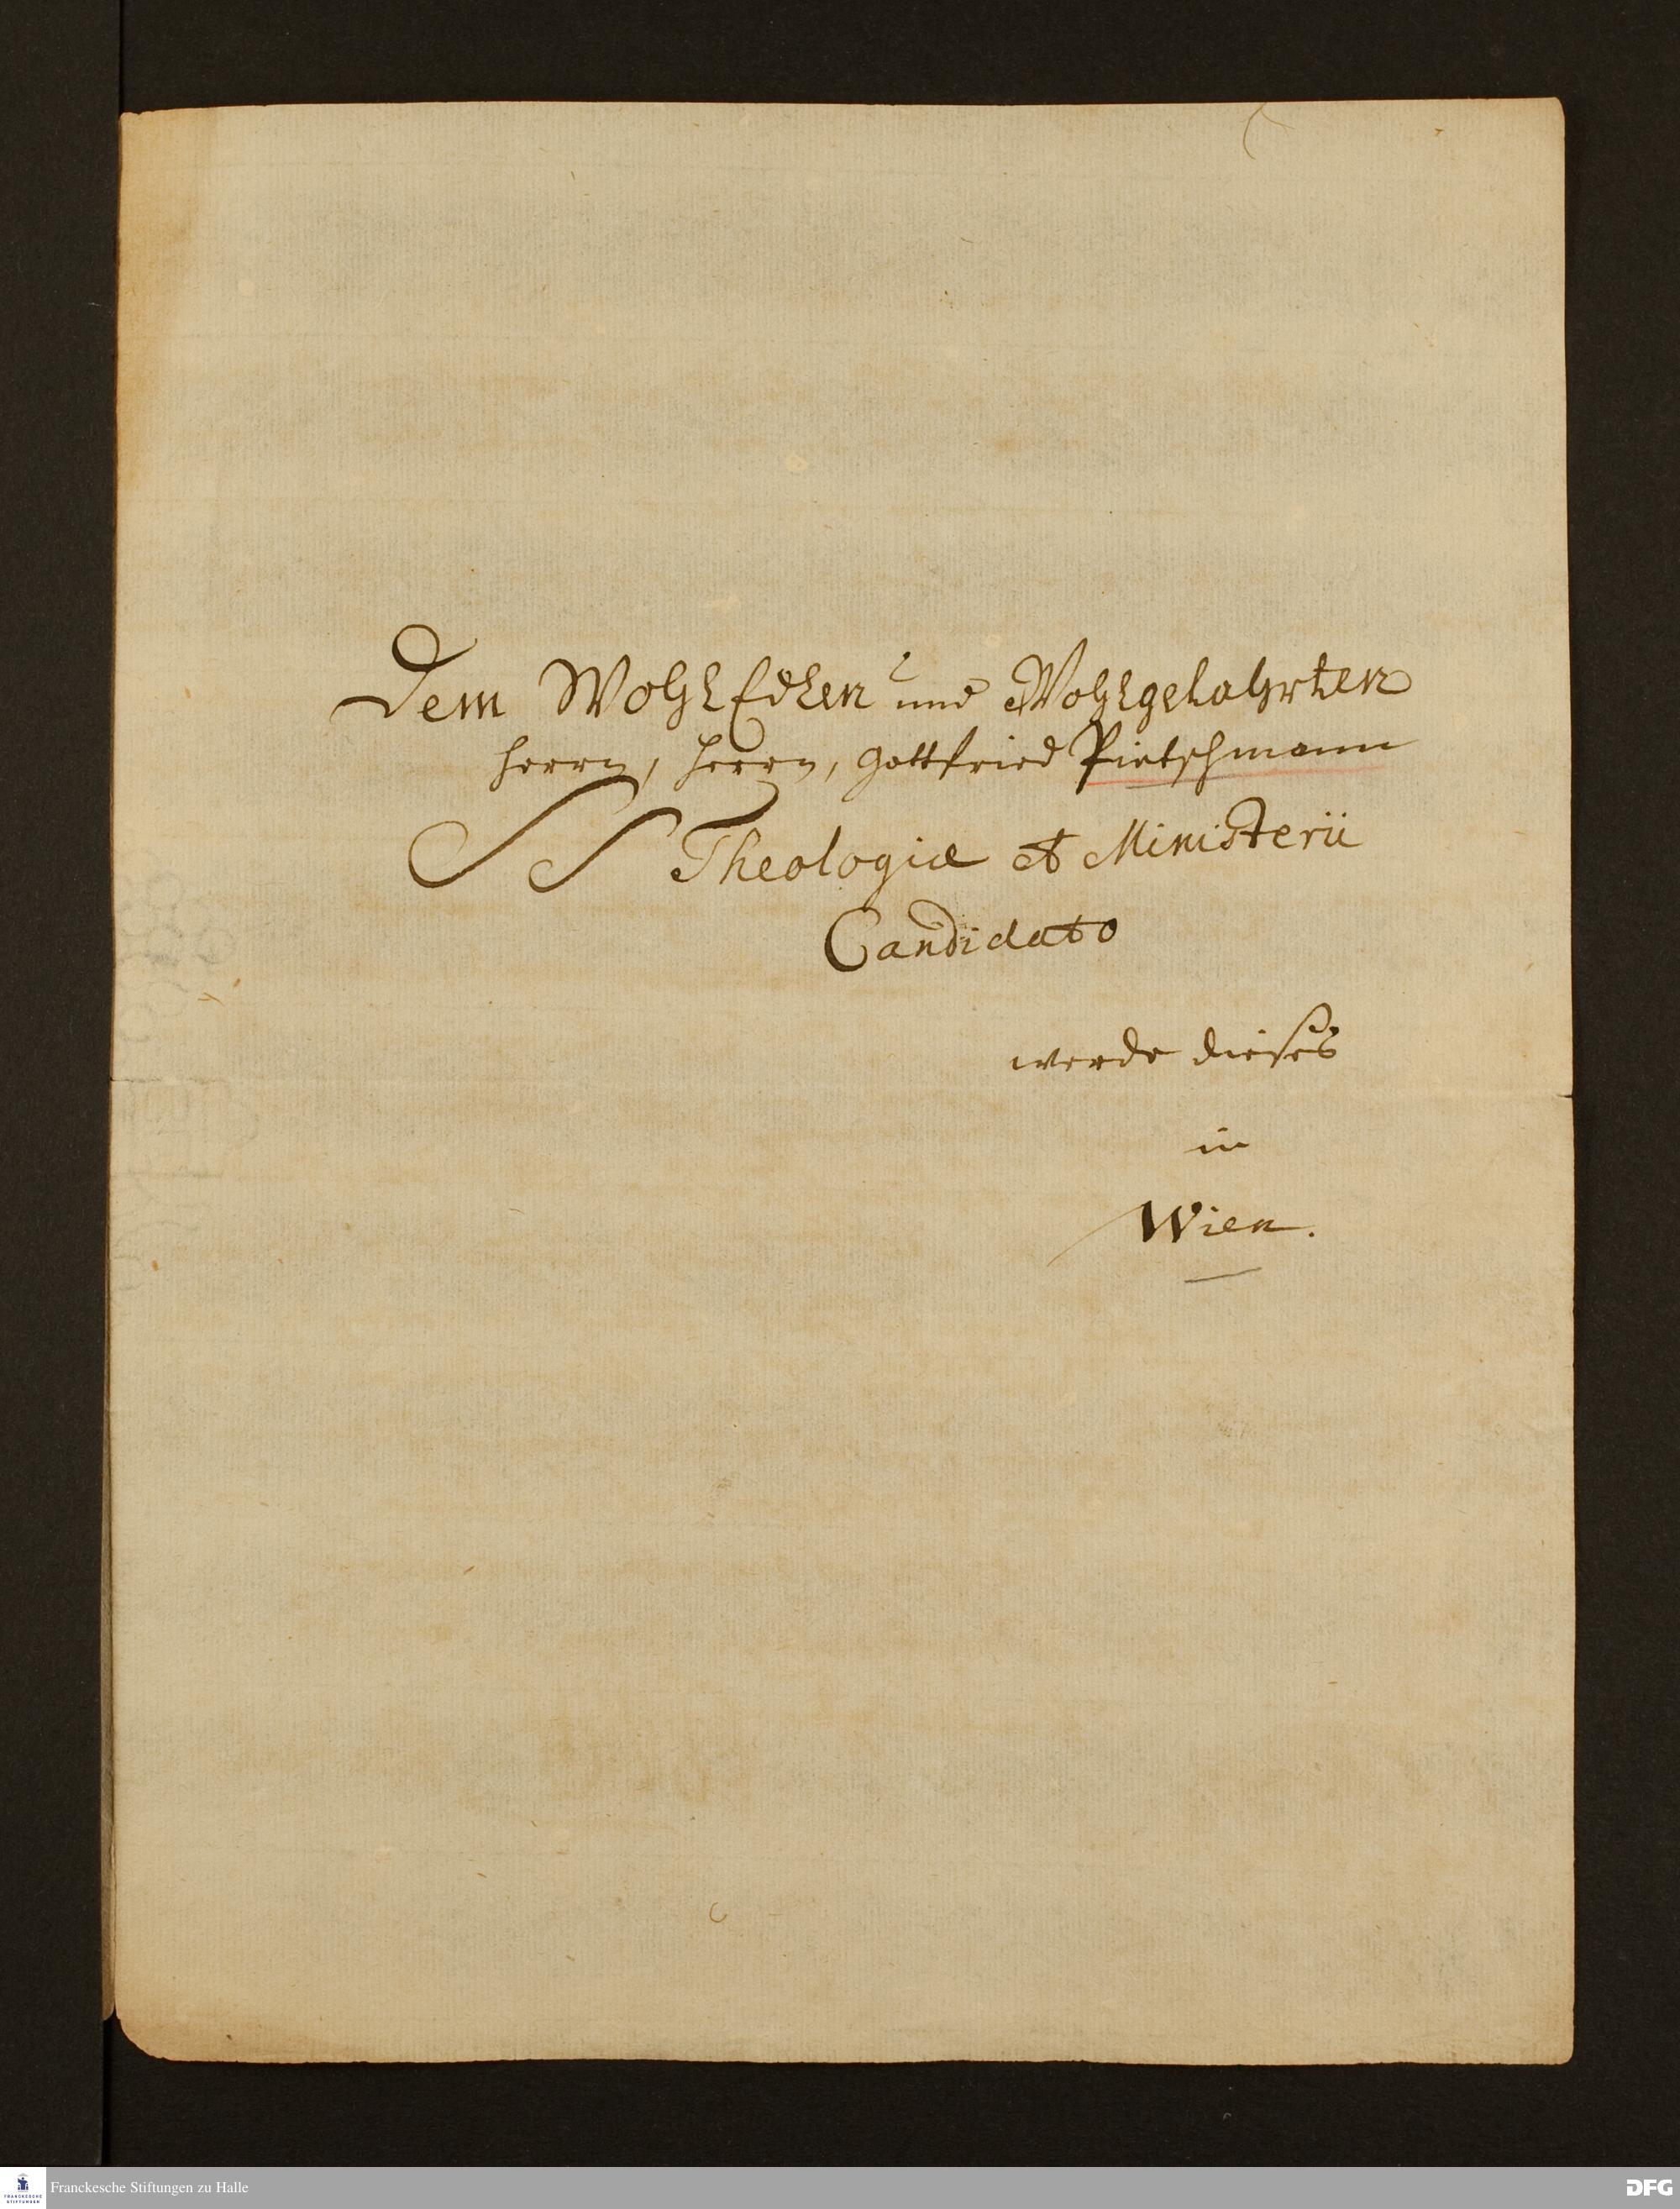 Dem WohlEdlen und Wohlgelahrten
Herrn, Herrn, Gottfried Pietschmann
SS Theologiæ et Ministerii
Candidato
werde dieses
in
Wien.
FRANCKESCHE
STIFTUNGEN
Franckesche Stiftungen zu Halle
DFG